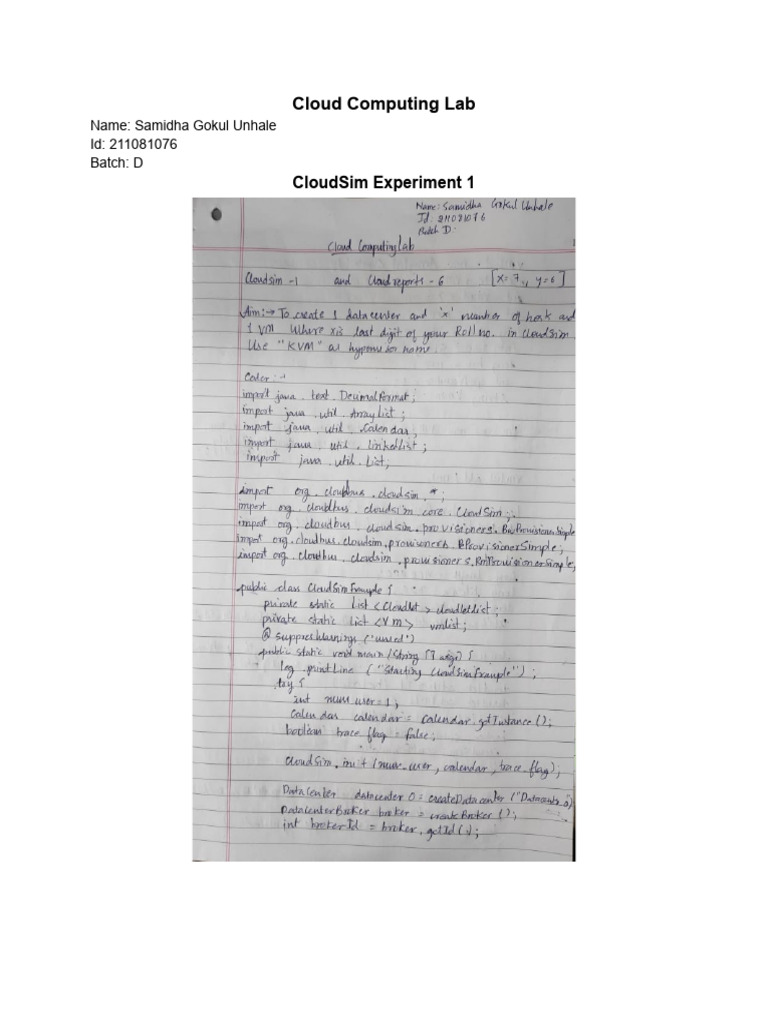 Cloud Computing Lab
Name: Samidha Gokul Unhale
Id: 211081076
Batch: D
CloudSim Experiment 1
Name: Samidha Gokul Unhale
Id. 211081076
Batch D.
Cloud Computing Lab
Cloudsim -1 and Cloud reports - 6 [x=7, y=6]
Aim:→ To create 1 datacenter and 'x' number of host and
1 VM Where x is last digit of your Roll no. in CloudSim
Use "KVM" as name
Code: -
import java. text. DecimalFormat;
import java. util. ArrayList;
import java. util. Calendar;
import java. util. LinkedList;
import java. util. List;
import org. cloudbus. cloudsim. *;
import org. cloudbus. cloudsim core. CloudSim;
import org. cloudbus. cloudsim. provisioners.
import org. cloudbus. cloudsim. provisioners.
import org. cloudbus. cloudsim. provisioners.
public class CloudSimExample {
private static List <Cloudlet> cloudletlist;
private static List <Vm> vmlist;
@ suppresWarnings ("unused")
public static void main (String [] args) {
log. printLine ("Starting CloudSimExample");
try {
int num_user = 1;
Calendar calendar = Calendar. getInstance ();
boolean trace flag = false;
CloudSim. init (num_user, calendar, trace_flag);
Datacenter datacenter 0 = createDatacenter ("Datacenter_0")
DatacenterBroker broker = createBroker ();
int brokerId = broker. getId ();